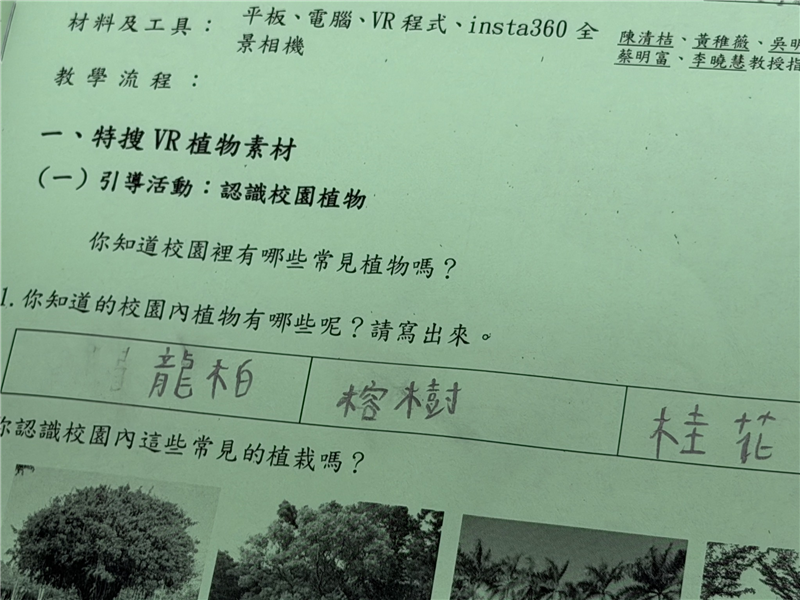 材料及工具：平板、電腦、VR程式、insta360全
景相機
陳清桔、黃稚薇、吳明
蔡明富、李曉慧教授指
教學流程：
一、特搜VR植物素材
（一）引導活動：認識校園植物
你知道校園裡有哪些常見植物嗎？
1.你知道的校園內植物有哪些呢？請寫出來。
龍柏 榕樹 桂花
你認識校園內這些常見的植栽嗎？